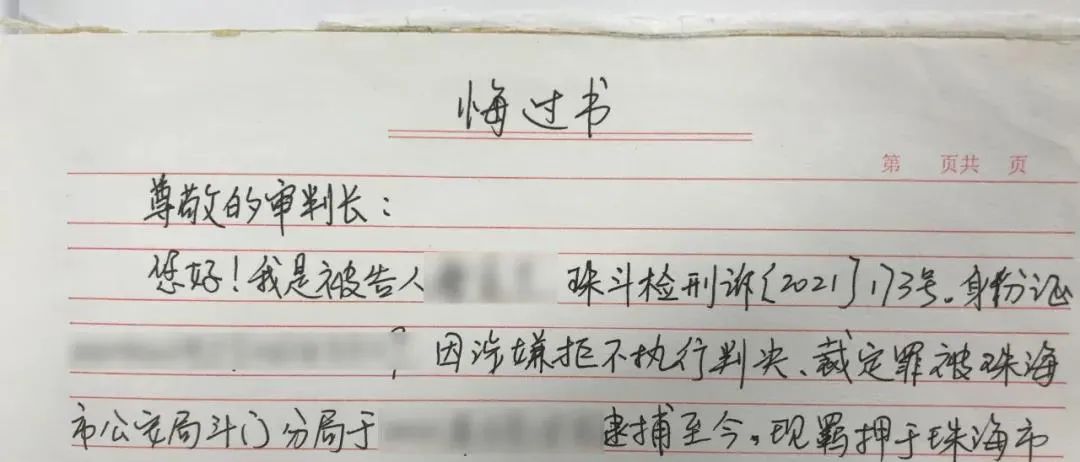 悔过书
第 页共 页
尊敬的审判长：
您好！我是被告人 珠斗检刑诉〔2021〕173号。身份证
，因涉嫌拒不执行判决、裁定罪被珠海
市公安局斗门分局于 逮捕至今，现羁押于珠海市